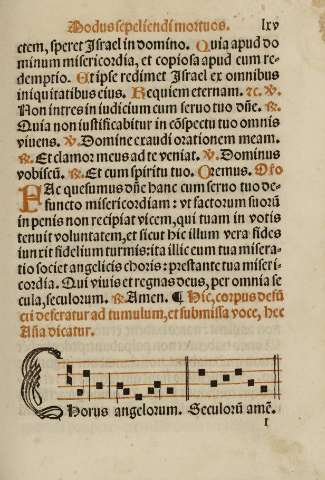 Modus sepeliendi mortuos. lxv
ctem, speret Israel in domino. Quia apud do
minum misericordia, et copiosa apud eum re-
demptio. Et ipse redimet Israel ex omnibus
iniquitatibus eius. Requiem eternam. ⁊c. ℣.
Non intres in iudicium cum seruo tuo dñe. ℟.
Quia non iustificabitur in cõspectu tuo omnis
viuens. ℣. Domine exaudi orationem meam.
℟. Et clamor meus ad te veniat. ℣. Dominus
vobiscũ. ℟. Et cum spiritu tuo. Oremus. Oro
FAc quesumus dñe hanc cum seruo tuo de-
functo misericordiam: vt factorum suorũ
in penis non recipiat vicem, qui tuam in votis
tenuit voluntatem, et sicut hic illum vera fides
iunxit fidelium turmis: ita illic eum tua misera-
tio societ angelicis choris: prestante tua miseri-
cordia. Qui viuis et regnas deus, per omnia se
cula, seculorum. ℟. Amen. ¶ Hic, corpus defũ
cti deferatur ad tumulum, et submissa voce, hec
Aña dicatur.
CHorus angelorum. Seculorũ amẽ.
I